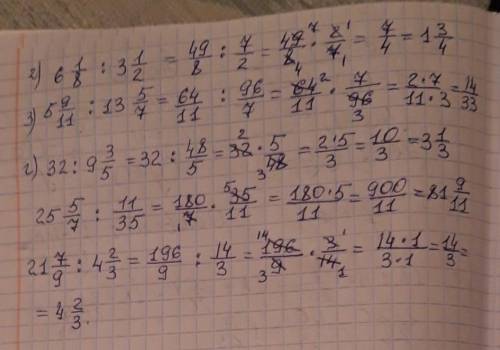 2) 6 1/8 : 3 1/2 = 49/8 : 7/2 = 49/8 · 2/7 = 7/4 = 1 3/4
3) 5 9/11 : 13 5/7 = 64/11 : 96/7 = 64/11 · 7/96 = 2·7/11·3 = 14/33
г) 32 : 9 3/5 = 32 : 48/5 = 32 · 5/48 = 2·5/3 = 10/3 = 3 1/3
25 5/7 : 11/35 = 180/7 · 35/11 = 180·5/11 = 900/11 = 81 9/11
21 7/9 : 4 2/3 = 196/9 : 14/3 = 196/9 · 3/14 = 14·1/3·1 = 14/3 =
= 4 2/3.